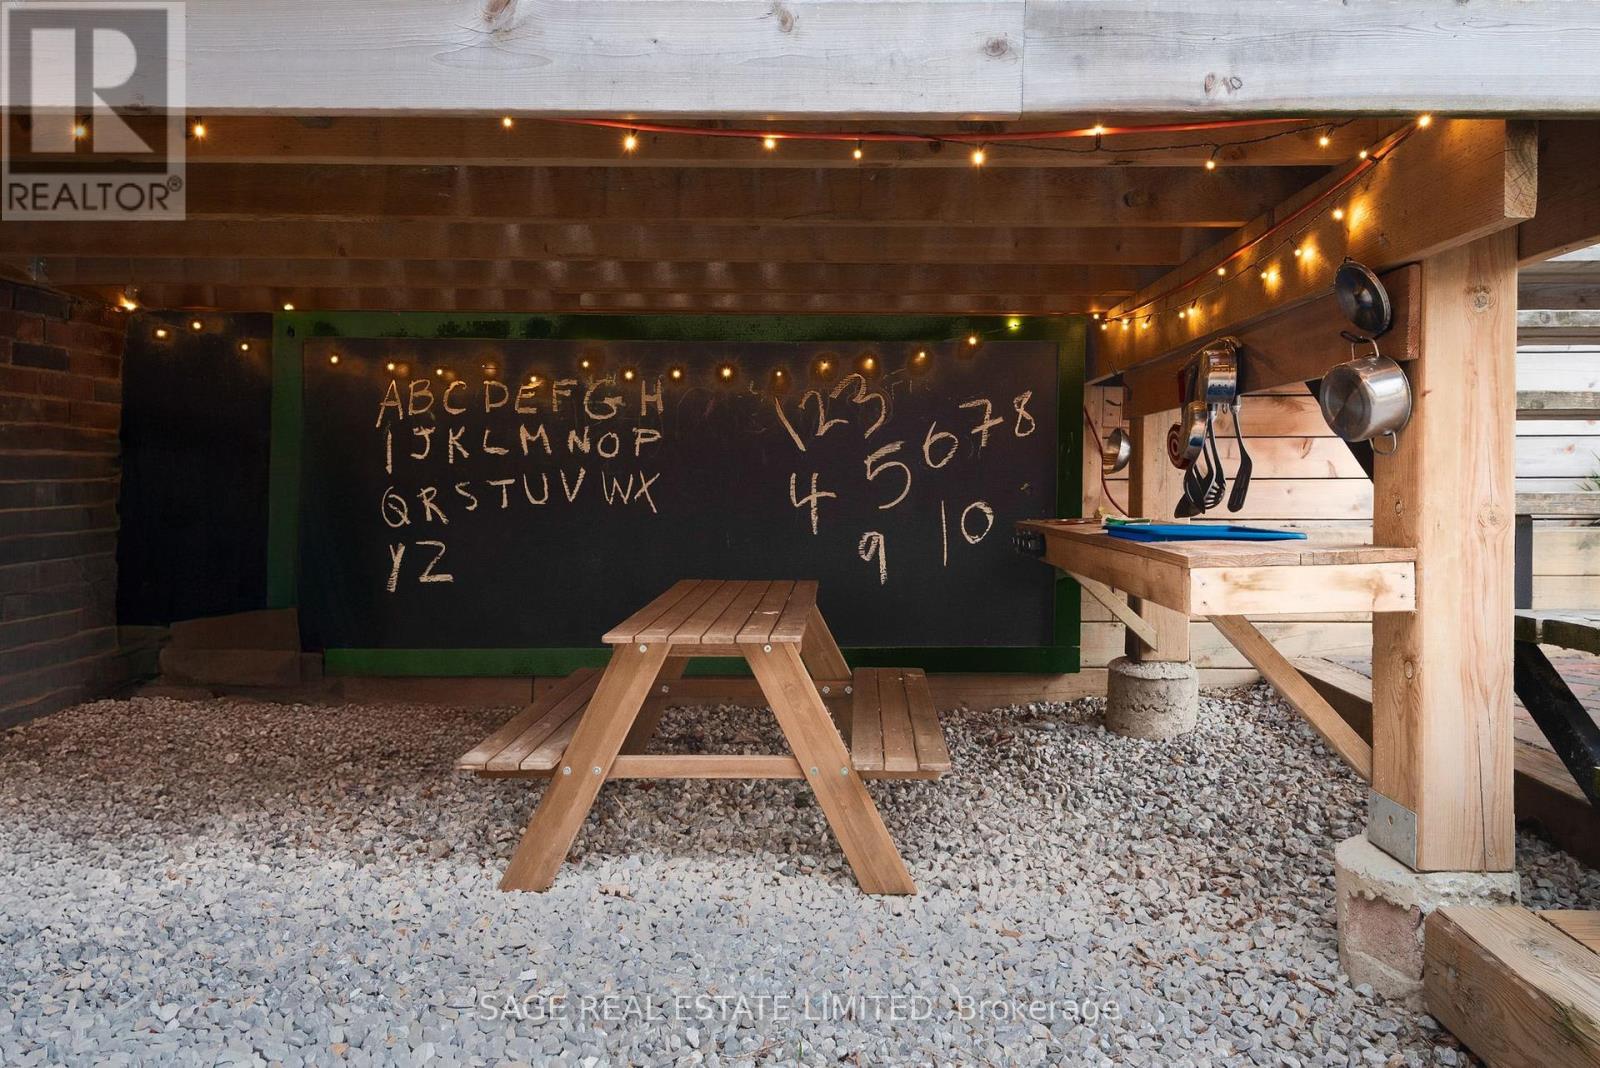 REALTOR®
ABCDEFGH
IJKLMNOP
QRSTUVWX
YZ
123
4 5 6 7 8
9 10
SAGE REAL ESTATE LIMITED, Brokerage